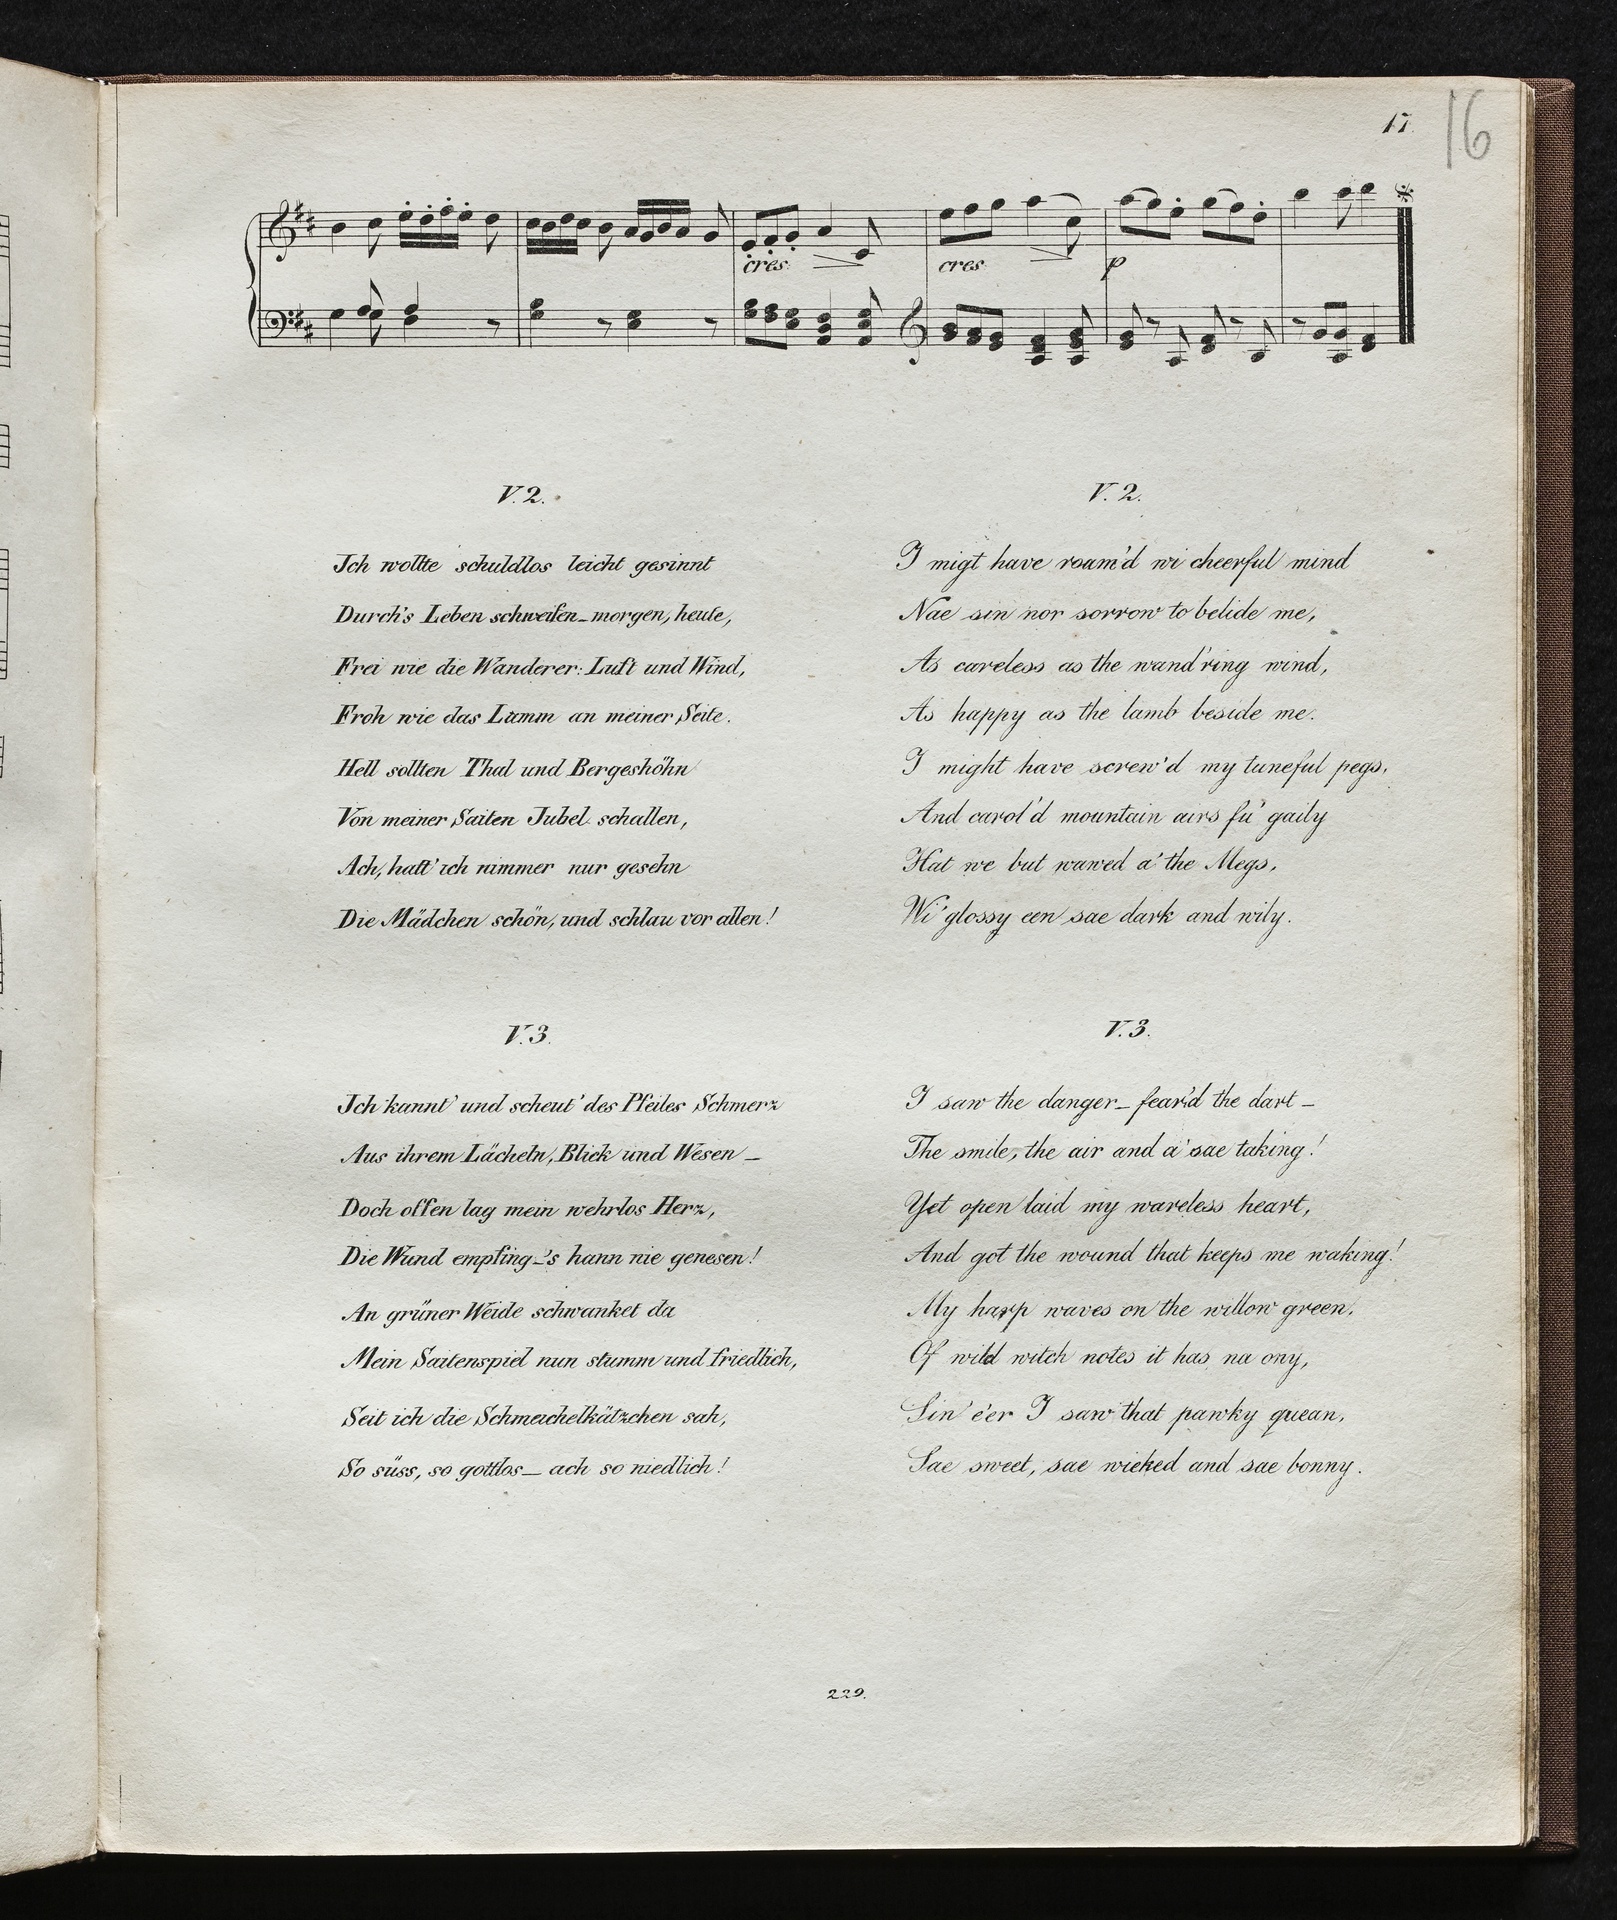 17
16
cres:
cres
p
V. 2.
Ich wollte schuldlos leicht gesinnt
Durch's Leben schweifen_morgen, heute,
Frei wie die Wanderer: Luft und Wind,
Froh wie das Lamm an meiner Seite.
Hell sollten Thal und Bergeshöhn
Von meiner Saiten Jubel schallen,
Ach, hatt' ich nimmer nur gesehn
Die Mädchen schön, und schlau vor allen!
V. 3.
Ich kannt' und scheut' des Pfeiles Schmerz
Aus ihrem Lächeln, Blick und Wesen _
Doch offen lag mein wehrlos Herz,
Die Wund empfing_'s kann nie genesen!
An grüner Weide schwanket da
Mein Saitenspiel nun stumm und friedlich,
Seit ich die Schmeichelkätzchen sah,
So süss, so gottlos_ ach so niedlich!
V. 2.
I migt have roam'd wi cheerful mind
Nae sin nor sorrow to belide me,
As careless as the wand'ring wind,
As happy as the lamb beside me.
I might have screw'd my tuneful pegs,
And carol'd mountain airs fu' gaily
Hat we but wawed a' the Megs,
Wi' glossy een sae dark and wily.
V. 3.
I saw the danger_ fear'd the dart _
The smile, the air and a' sae taking!
Yet open laid my wareless heart,
And got the wound that keeps me waking!
My harp waves on the willow green,
Of wild witch notes it has na ony,
Sin' e'er I saw that pawky quean,
Sae sweet, sae wicked and sae bonny.
229.